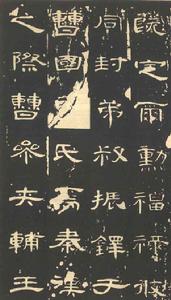 既定爾勳福祿攸
同封弟叔振鐸于
曹國氏焉秦漢
之際曹參夾輔王